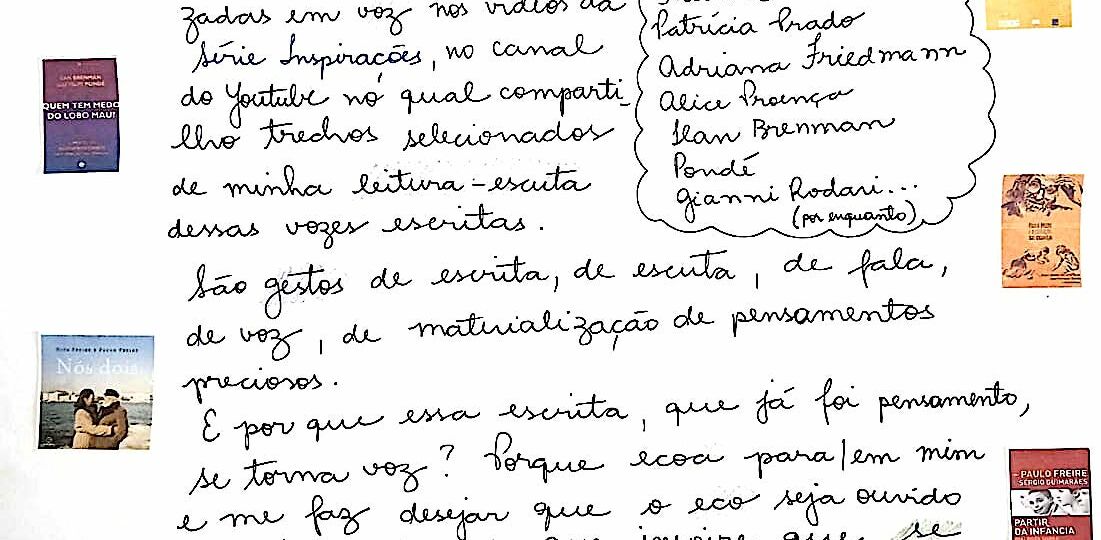 zadas em voz nos vídeos da
série Inspirações, no canal
do Youtube no qual comparti-
lho trechos selecionados
de minha leitura-escuta
dessas vozes escritas.
Patrícia Prado
Adriana Friedmann
Alice Proença
Ilan Brenman
Pondé
Gianni Rodari...
(por enquanto)
São gestos de escrita, de escuta, de fala,
de voz, de materialização de pensamentos
preciosos.
E por que essa escrita, que já foi pensamento,
se torna voz? Porque ecoa para/em mim
e me faz desejar que o eco seja ouvido
QUEM TEM MEDO
DO LOBO MAU?
Nós dois
PAULO FREIRE
SÉRGIO GUIMARÃES
PARTIR
DA INFÂNCIA